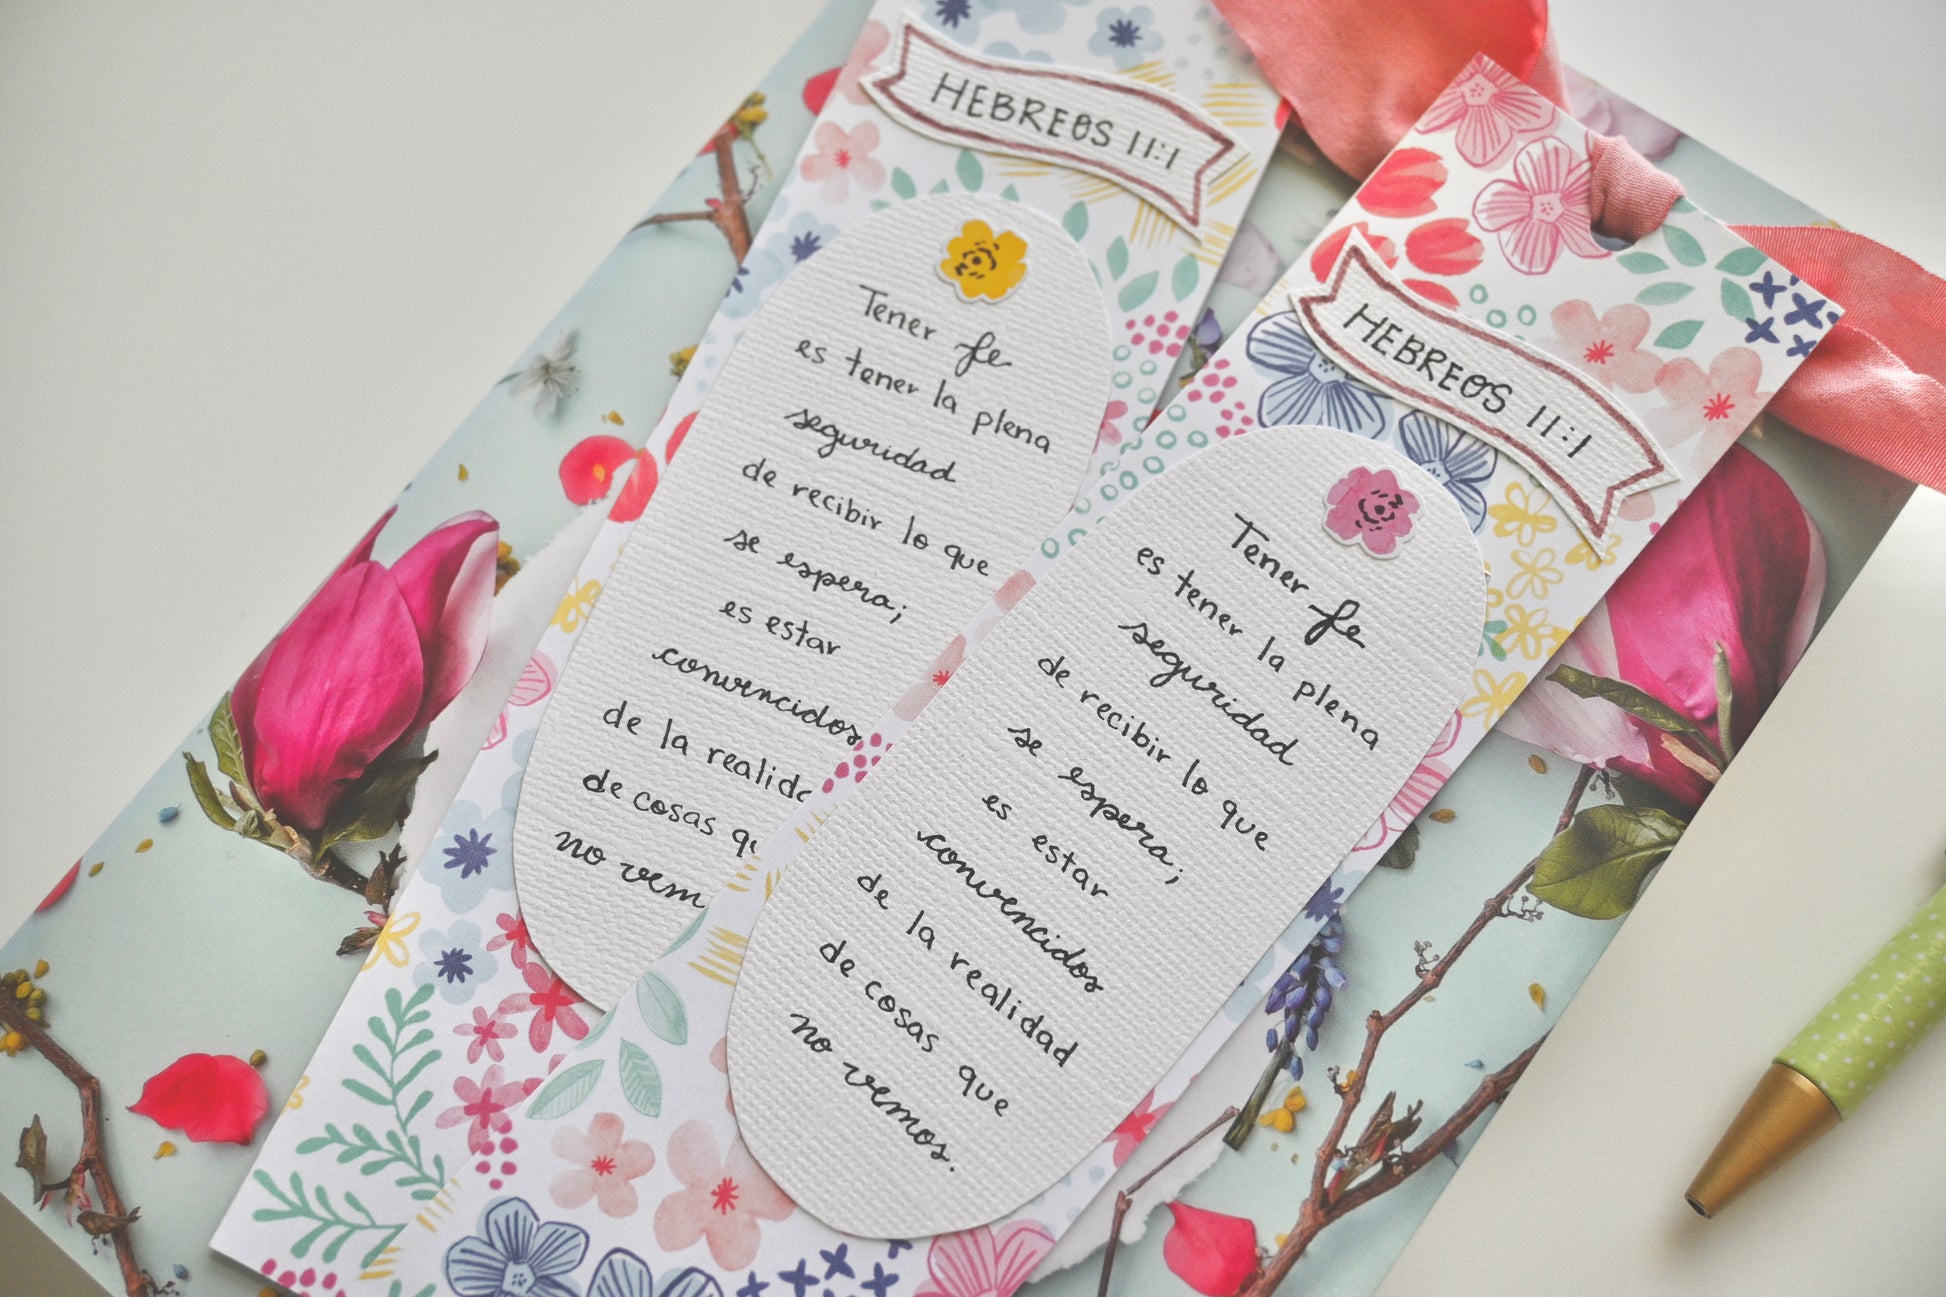 HEBREOS 11:1
Tener fe
es tener la plena
seguridad
de recibir lo que
se espera;
es estar
convencidos
de la realida
de cosas qu
no vem
HEBREOS 11:1
Tener fe
es tener la plena
seguridad
de recibir lo que
se espera;
es estar
convencidos
de la realidad
de cosas que
no vemos.